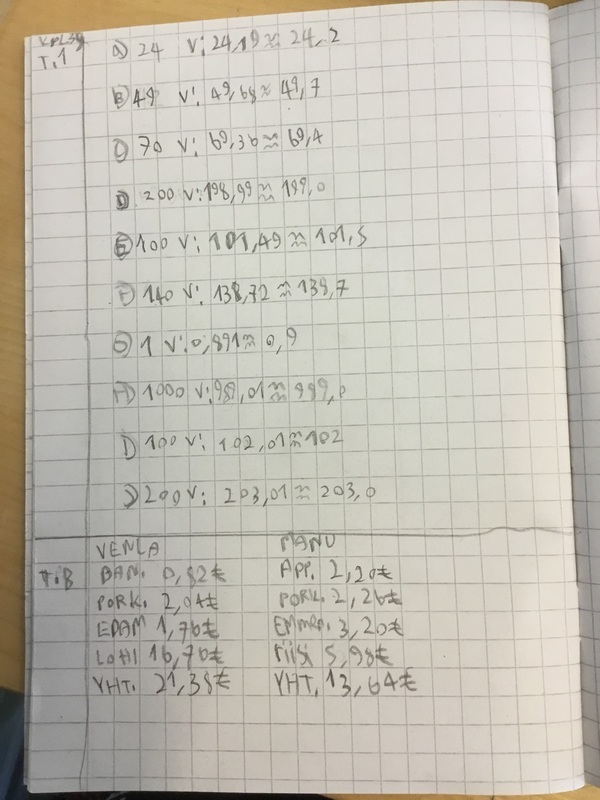 T.1
a) 24 V: 24,19 ≈ 24,2
B) 49 V: 49,68 ≈ 49,7
C) 70 V: 69,36 ≈ 69,4
D) 200 V: 198,99 ≈ 199,0
E) 100 V: 101,49 ≈ 101,5
F) 140 V: 138,72 ≈ 138,7
G) 1 V: 0,891 ≈ 0,9
H) 1000 V: 989,01 ≈ 999,0
I) 100 V: 102,01 ≈ 102
J) 200 V: 203,01 ≈ 203,0
VENLA MANU
T.B BAN. 0,82€ APP. 2,20€
PORK. 2,04€ PORK. 2,26€
EDAM 1,76€ EMMEN. 3,20€
LOHI 16,76€ riisi 5,98€
YHT. 21,38€ YHT. 13,64€